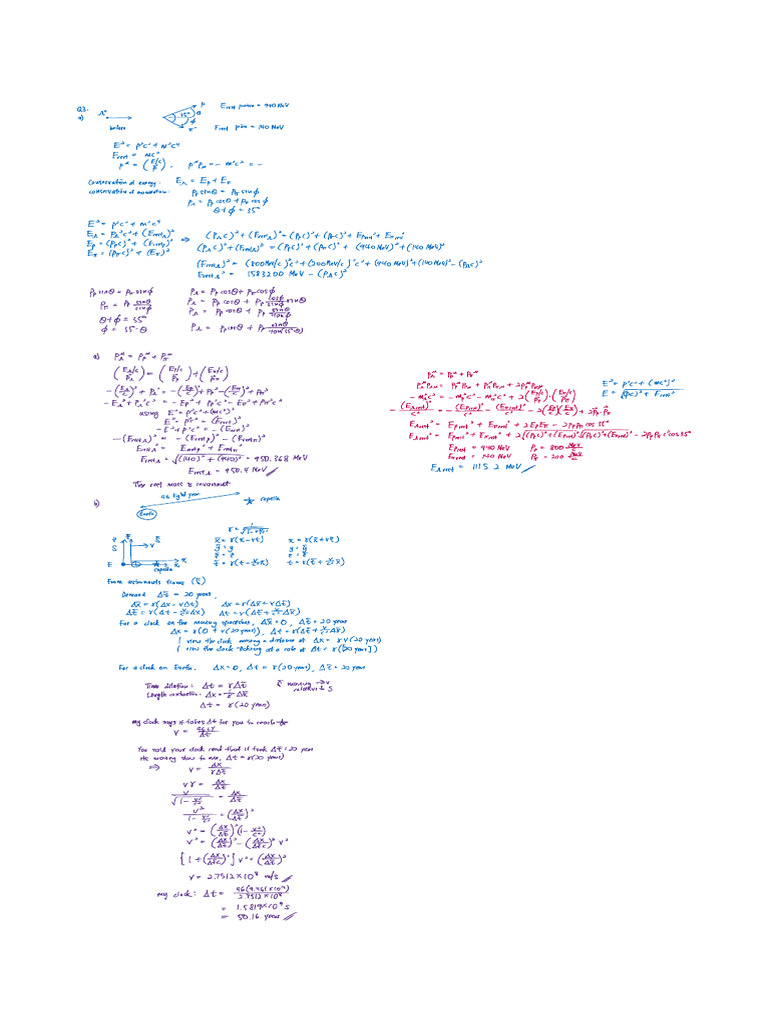 Q3.
a) Λ° before p θ 35° φ π⁻ E rest proton = 940 MeV
E rest pion = 140 MeV
E² = p²c² + m²c⁴
E rest = mc²
Conservation of energy: E_Λ = E_p + E_π
conservation of momentum: p_p sinθ = p_π sinφ
p_Λ = p_p cosθ + p_π cosφ
θ + φ = 35°
E² = p²c² + m²c⁴
E_Λ = (p_Λ c)² + (E rest Λ)²
E_p = (p_p c)² + (E rest p)²
E_π = (p_π c)² + (E π)²
⇒ (p_Λ c)² + (E rest Λ)² = (p_p c)² + (p_π c)² + E rest² + E rest²
(p_Λ c)² + (E rest Λ)² = (p_p c)² + (p_π c)² + (940 MeV)² + (140 MeV)²
(E rest Λ)² = (800 MeV/c)²c² + (200 MeV/c)²c² + (940 MeV)² + (140 MeV)² − (p_Λ c)²
E rest Λ² = 1583200 MeV − (p_Λ c)²
p_p sinθ = p_π sinφ
p_π = p_p sinθ/sinφ
θ + φ = 35°
φ = 35 − θ
p_Λ = p_p cosθ + p_π cosφ
p_Λ = p_p cosθ + p_p cosφ/sinφ sinθ
p_Λ = p_p cosθ + p_p sinθ/tanφ
p_Λ = p_p cosθ + p_p sinθ/tan(35−θ)
a) p_Λ^μ = p_p^μ + p_π^μ
(E_Λ/c, p_Λ) = (E_p/c, p_p) + (E_π/c, p_π)
−(E_Λ/c)² + p_Λ² = −(E_p/c)² + p_p² − (E_π/c)² + p_π²
−E_Λ² + p_Λ²c² = −E_p² + p_p²c² − E_π² + p_π²c²
using E² = p²c² + (mc²)²
E² − p²c² = (E rest)²
−E² + p²c² = −(E rest)²
−(E rest Λ)² = −(E rest p)² − (E rest π)²
E rest Λ² = E rest p² + E rest π²
E rest Λ = √((140)² + (940)²) = 950.368 MeV
E rest Λ = 950.4 MeV
The rest mass is invariant
p_Λ^μ = p_p^μ + p_π^μ
E² = p²c² + (mc²)²
E = √((pc)² + E rest²)
−(E Λ rest)²/c² = −(E p rest)²/c² − (E π rest)²/c² − 2(E_p/c)(E_π/c) + 2p_p·p_π
E Λ rest² = E p rest² + E π rest² + 2E_pE_π − 2p_pp_π cos35°
E Λ rest² = E p rest² + E π rest² + 2√((p_pc)² + (E p rest)²)√((p_πc)² + (E π rest)²) − 2p_pp_πc² cos35°
E p rest = 940 MeV p_p = 800 MeV/c
E π rest = 140 MeV p_π = 200 MeV/c
E Λ rest = 1115.2 MeV
b) 46 light year
Earth capella
γ = 1/√(1−v²/c²)
x̄ = γ(x−vt) x = γ(x̄+vt̄)
ȳ = y y = ȳ
z̄ = z z = z̄
t̄ = γ(t−v/c² x) t = γ(t̄+v/c² x̄)
From astronauts frame (S̄)
Demand Δt̄ = 20 years,
Δx̄ = γ(Δx − vΔt) Δx = γ(Δx̄ + vΔt̄)
Δt̄ = γ(Δt − v/c² Δx) Δt = γ(Δt̄ + v/c² Δx̄)
For a clock on the moving spaceship, Δx̄ = 0, Δt̄ = 20 years
Δx = γ(0 + v(20 years)), Δt = γ(Δt̄ + v/c² Δx̄)
I view the clock moving a distance of Δx = γv(20 years)
I view the clock ticking at a rate of Δt = γ(20 years)
For a clock on Earth. Δx = 0, Δt = γ(20 years), Δt̄ = 20 years
Time dilation: Δt = γΔt̄ S̄ moving → v
Length contraction: Δx = 1/γ Δx̄ relative to S
Δt = γ(20 years)
My clock says it takes Δt for you to reach
v = 46LY/Δt
You said your clock read that it took Δt̄ = 20 years
He moving slow to me, Δt = γ(20 years)
⇒ v = Δx/γΔt̄
vγ = Δx/Δt̄
v/√(1−v²/c²) = Δx/Δt̄
v²/(1−v²/c²) = (Δx/Δt̄)²
v² = (Δx/Δt̄)²(1−v²/c²)
v² = (Δx/Δt̄)² − (Δx/Δt̄c)² v²
{1 + (Δx/Δt̄c)²} v² = (Δx/Δt̄)²
v = 2.7512×10⁸ m/s
My clock: Δt = 46(9.461×10¹⁵)/2.7512×10⁸
= 1.5819×10⁹ s
= 50.16 years